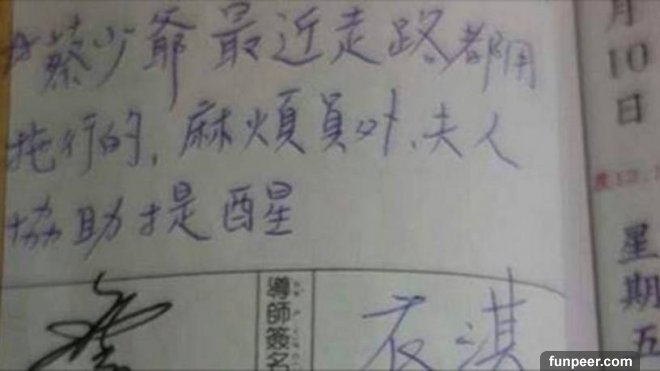 蔡少爺最近走路都用
拖行的,麻煩員外、夫人
協助提醒
導師簽名
淇
月
10
日
星
期
五
funpeer.com